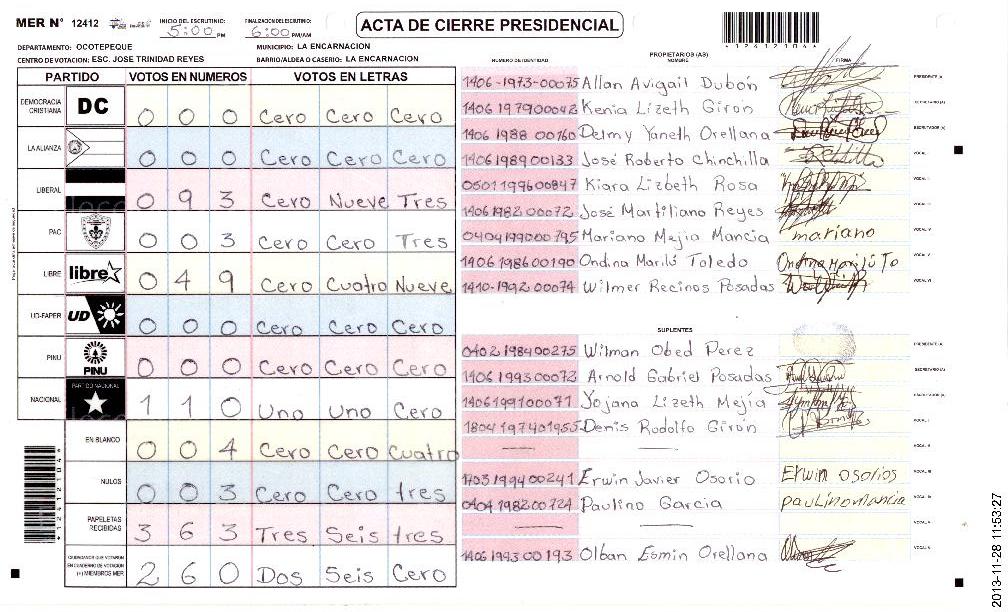 MER Nº 12412
INICIO DEL ESCRUTINIO: 5:00 PM
FINALIZACION DEL ESCRUTINIO: 6:00 PM/AM
ACTA DE CIERRE PRESIDENCIAL
DEPARTAMENTO: OCOTEPEQUE
MUNICIPIO: LA ENCARNACION
CENTRO DE VOTACION: ESC. JOSE TRINIDAD REYES
BARRIO/ALDEA O CASERIO: LA ENCARNACION
PARTIDO VOTOS EN NUMEROS VOTOS EN LETRAS
DEMOCRACIA CRISTIANA DC 0 0 0 Cero Cero Cero
LA ALIANZA 0 0 0 Cero Cero Cero
LIBERAL 0 9 3 Cero Nueve Tres
PAC 0 0 3 Cero Cero Tres
LIBRE libre 0 4 9 Cero Cuatro Nueve
UD-FAPER UD 0 0 0 Cero Cero Cero
PINU PINU 0 0 0 Cero Cero Cero
NACIONAL PARTIDO NACIONAL 1 1 0 Uno Uno Cero
EN BLANCO 0 0 4 Cero Cero Cuatro
NULOS 0 0 3 Cero Cero tres
PAPELETAS RECIBIDAS 3 6 3 Tres Seis tres
CIUDADANOS QUE VOTARON EN CUADERNO DE VOTACION (+) MIEMBROS MER 2 6 0 Dos Seis Cero
PROPIETARIOS (AS)
NUMERO DE IDENTIDAD NOMBRE FIRMA
1406-1973-00075 Allan Avigail Dubón PRESIDENTE (A)
1406 1979 00042 Kenia Lizeth Giron SECRETARIO (A)
1406 1988 00160 Delmy Yaneth Orellana ESCRUTADOR (A)
1406 1989 00133 José Roberto Chinchilla VOCAL I
0501 1996 00847 Kiara Lizbeth Rosa VOCAL II
1406 1982 00072 José Martiliano Reyes VOCAL III
0404 1990 00795 Mariano Mejia Mancia mariano VOCAL IV
1406 1986 00190 Ondina Marilú Toledo Ondina Marilú To VOCAL V
1410-1992 00074 Wilmer Recinos Posadas VOCAL VI
SUPLENTES
0402 1984 00275 Wilman Obed Perez PRESIDENTE (A)
1406 1993 00072 Arnold Gabriel Posadas SECRETARIO (A)
1406 1991 00071 Yojana Lizeth Mejía ESCRUTADOR (A)
1804 1974 01955 Denis Rodolfo Girón VOCAL I
VOCAL II
1703 1994 00241 Erwin Javier Osorio Erwin osorios VOCAL III
0404 1982 00724 Paulino Garcia VOCAL IV
VOCAL V
1406 1993 00193 Olban Esmin Orellana
2013-11-28 11:53:27